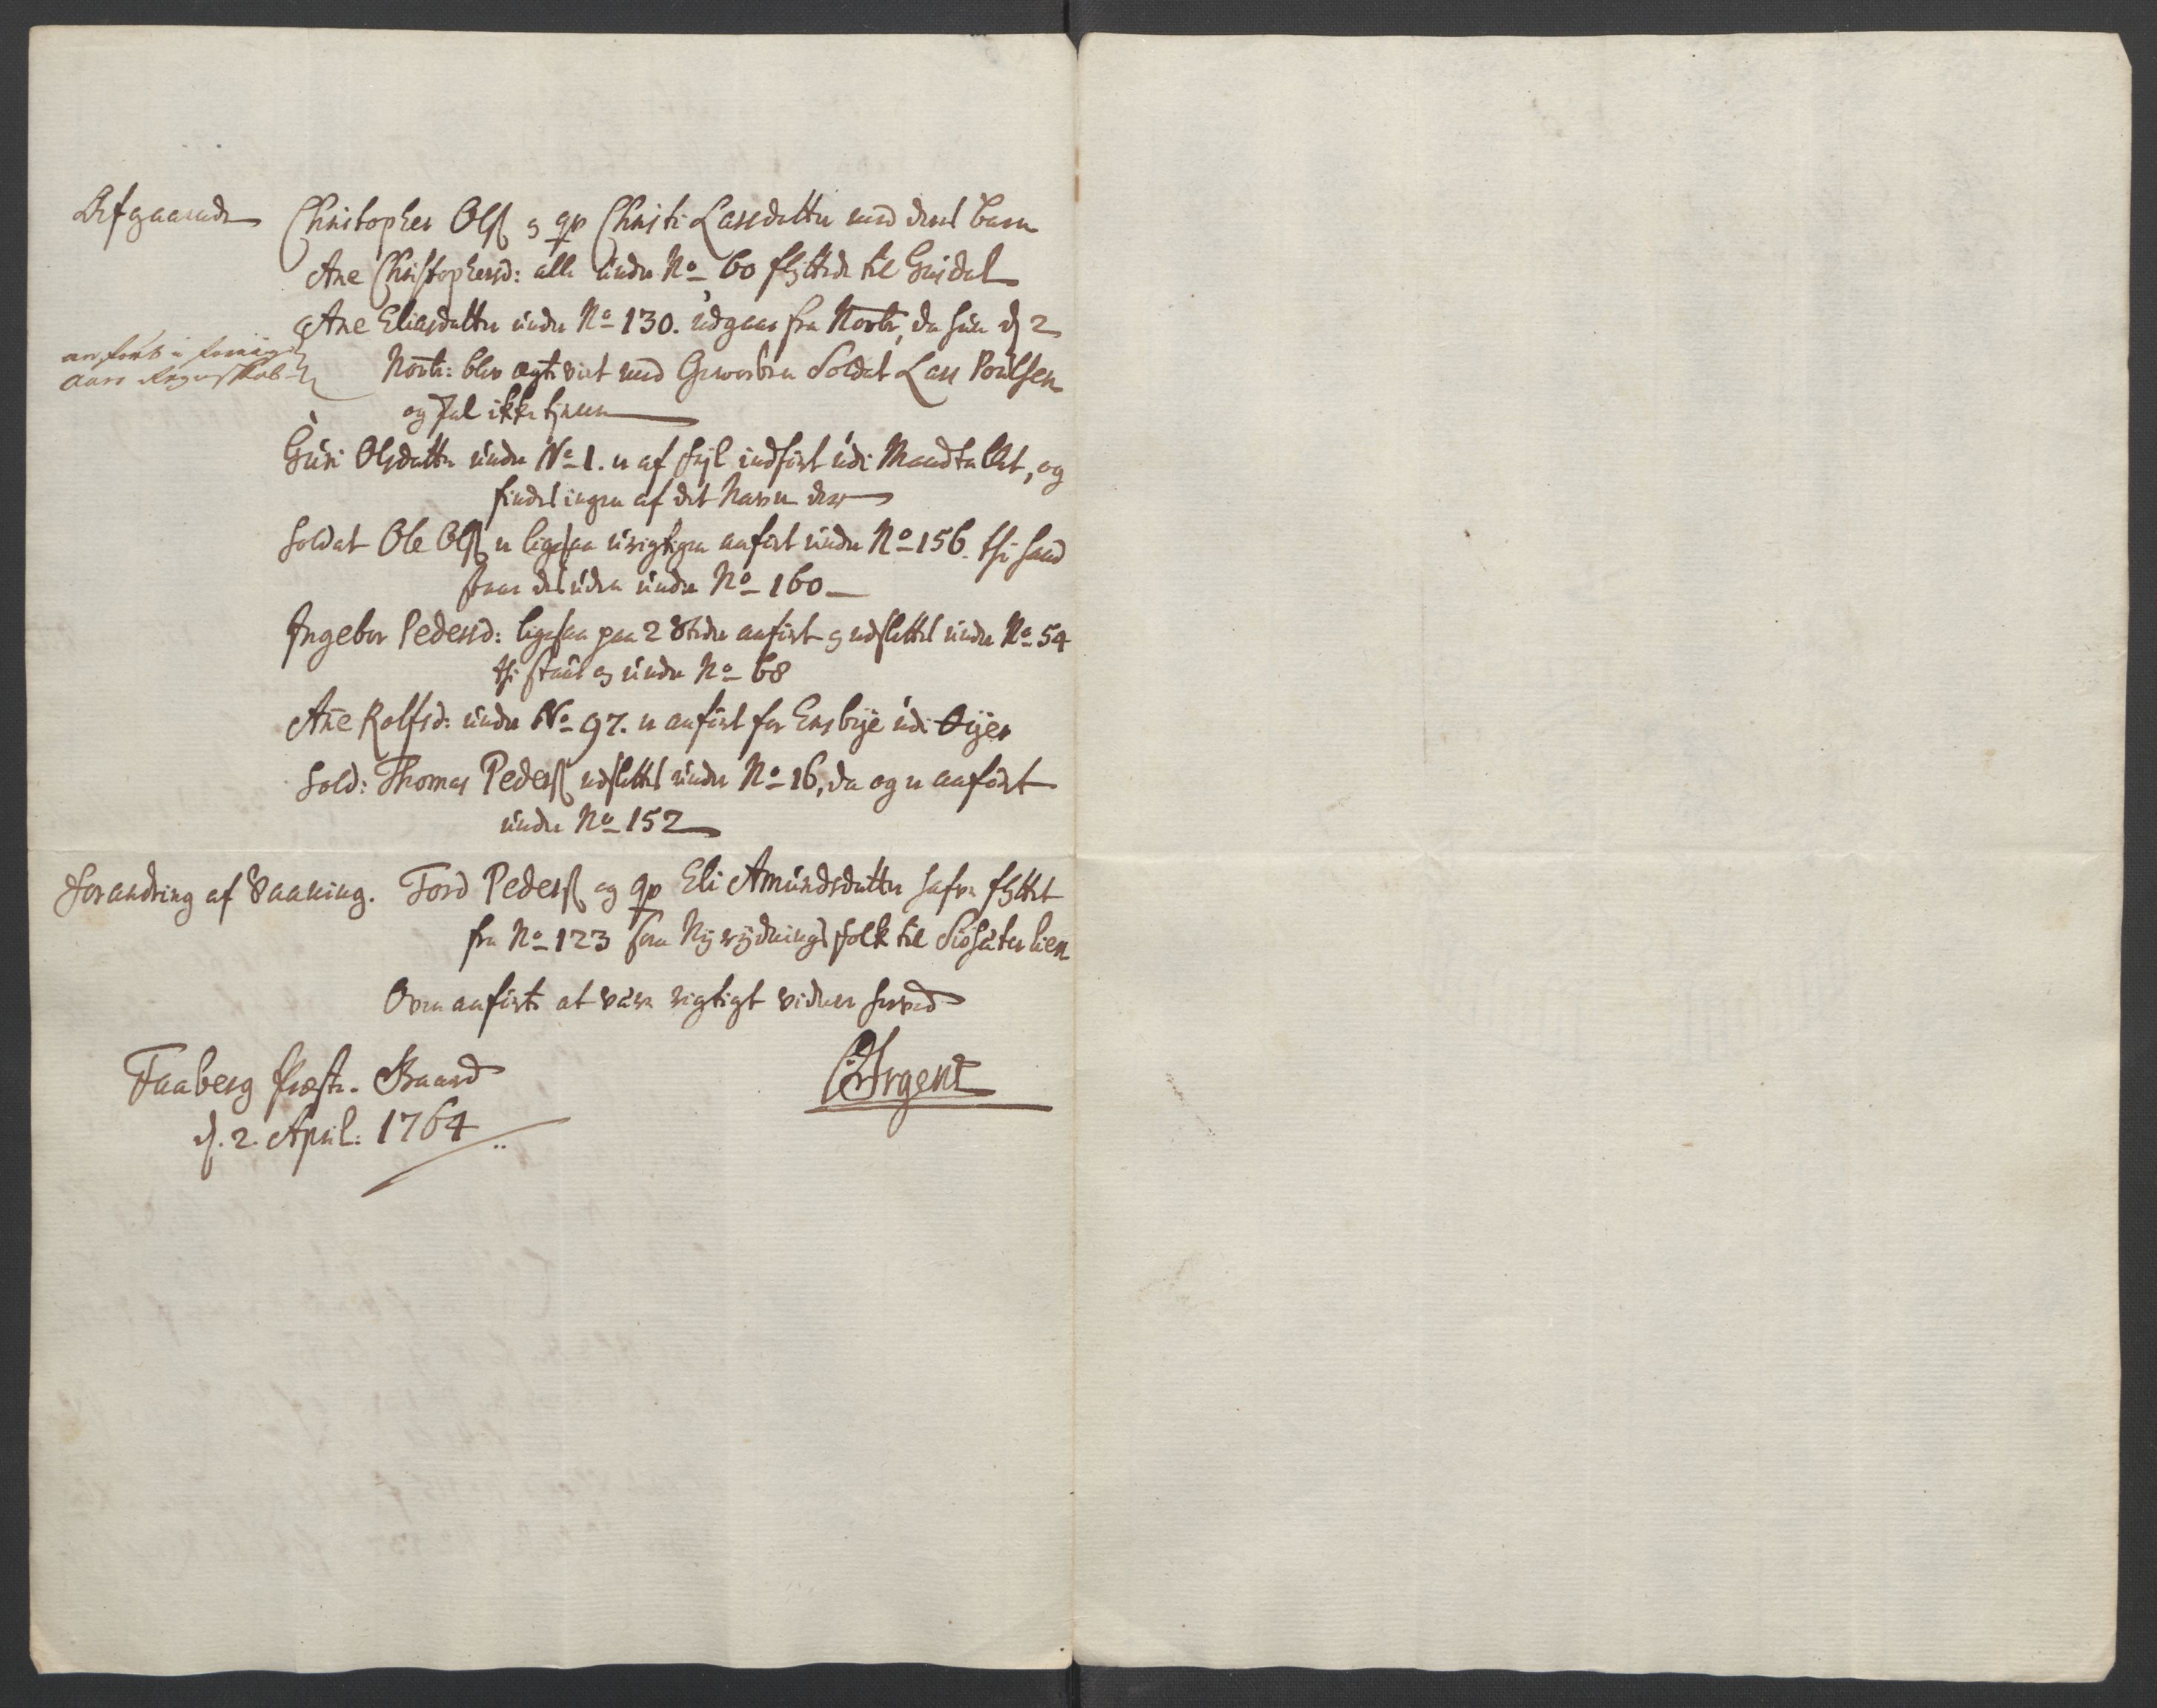 Afgaaende Christopher Olss og qv Christi Larsdatter med deres barn
Ane Christophersd: alle under No 60 flyttede til Gusdal
Ane Eliasdatter under No 130. udgaar fra Novbr, da hun d 2
anført i forrige
aars Regnskab
Novbr: blev ægte viet med Geworben Soldat Lars Poulsen
og skal ikke tjenner
Guri Olsdatter under No 1. er af fejl indført udi Mandtallet, og
findes ingen af det Navn der
Soldat Ole Olss er ligesaa urigtigen anført under No 156. thi hand
staar desuden under No 160
Ingebor Pedersd: ligesaa paa 2 Stæder anført og udslettes under No 54
thi staaes og under No 68
Ane Rolfsd: under No 97. er anført for Ensbye udi Öijer
Sold: Thomas Pederss udslettes under No 16, da og er anført
under No 152
Forandring af Vaaning. Tord Pederss og qv Eli Amundsdatter hafve flyttet
fra No 123 som Nÿ rÿdnings folk til Siösäter lien
Ovenanførte at være rigtigt vidner herved
Faaberg Præste-Gaard
d. 2. April: 1764
Argent